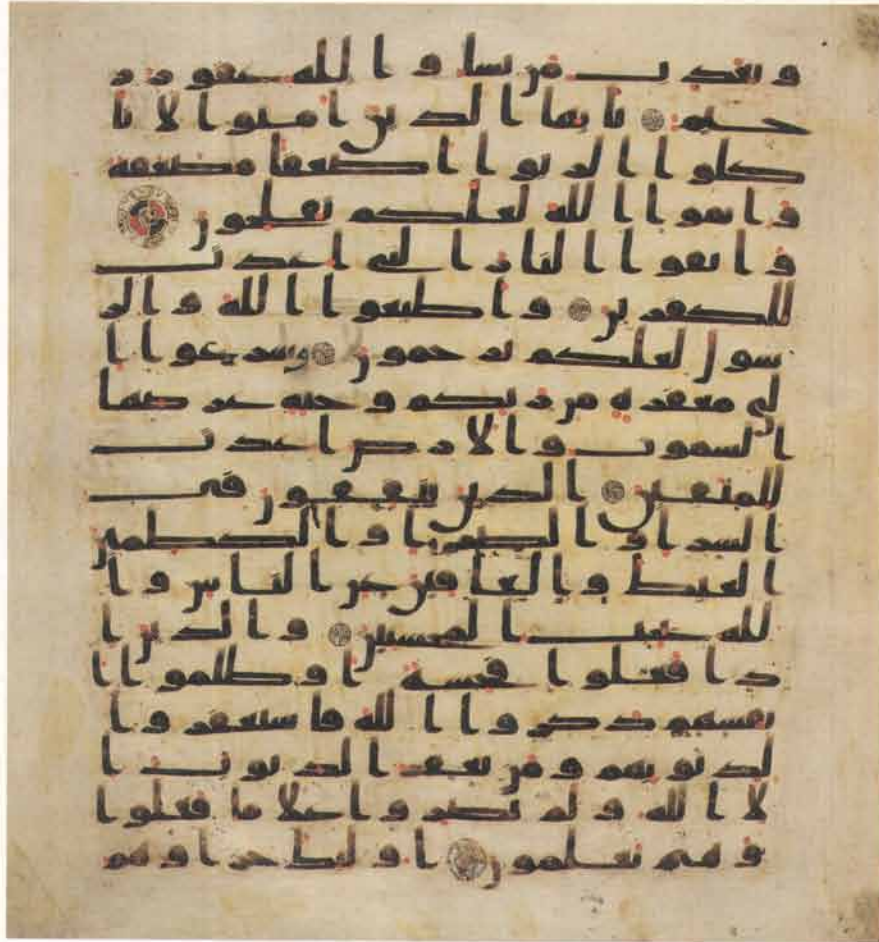 ويعذب من يشا والله غفور ر
حيم يايها الذين امنوا لا تا
كلوا الربوا اضعفا مضعفة
واتقوا الله لعلكم تفلحون
واتقوا النار التي اعدت
للكفرين واطيعوا الله والر
سول لعلكم ترحمون وسرعوا ا
لى مغفرة من ربكم وجنة عرضها
السموت والارض اعدت
للمتقين الذين ينفقون في
السرا والضرا والكظمين
الغيظ والعافين عن الناس وا
لله يحب المحسنين والذين ا
ذا فعلوا فحشة او ظلموا ا
نفسهم ذكروا الله فاستغفروا
لذنوبهم ومن يغفر الذنوب ا
لا الله ولم يصروا على ما فعلوا
وهم يعلمون اوليك جزاوهم